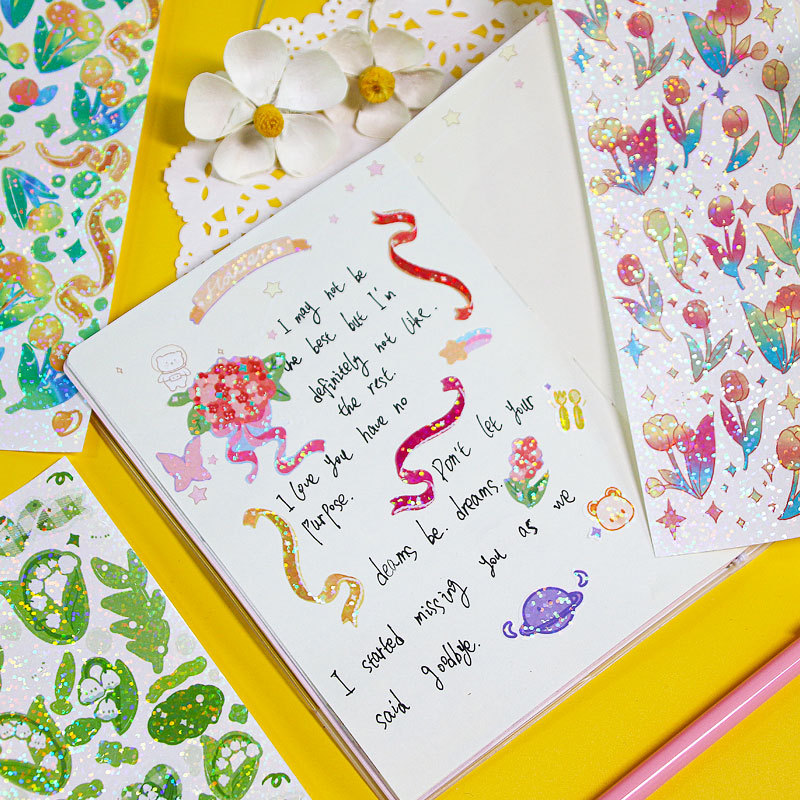 Flowers
I may not be
the best but I'm
definitely not like.
the rest.
I love you have no
purpose.
Don't let your
deams be. dreams.
I started missing you as we
said goodbye.